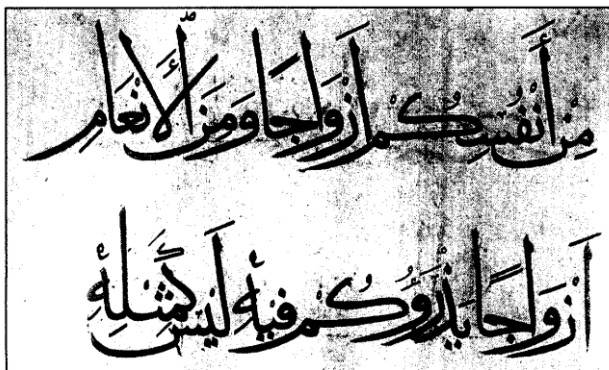 مِنْ أَنْفُسِكُمْ أَزْوَاجًا وَمِنَ الْأَنْعَامِ
أَزْوَاجًا يَذْرَؤُكُمْ فِيهِ لَيْسَ كَمِثْلِهِ